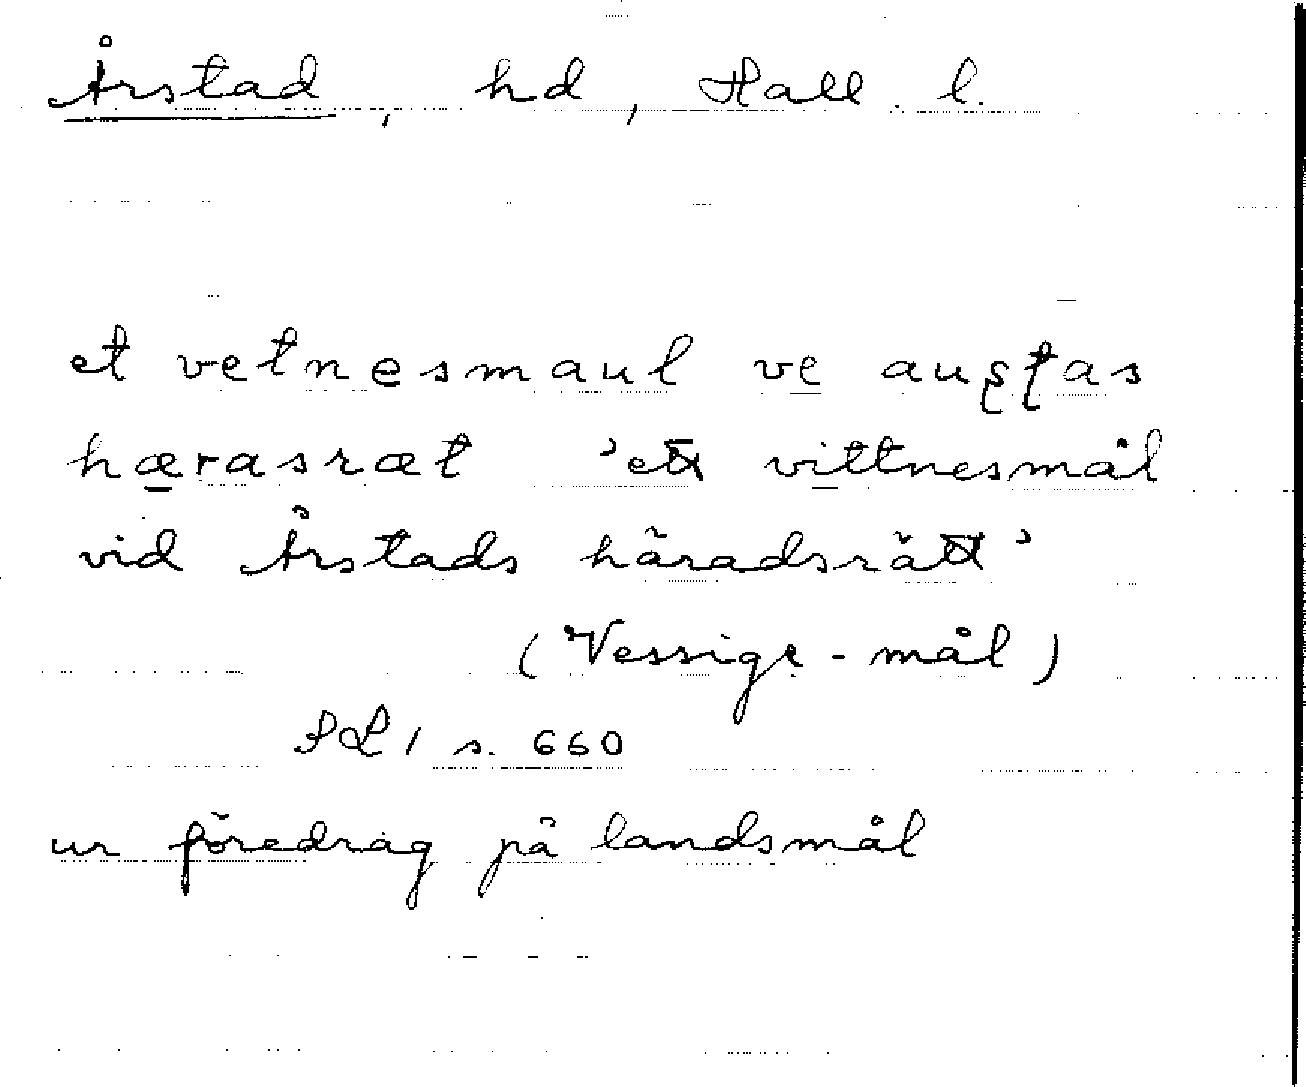 Årstad, hd, Hall. l.
et vetnesmaul ve auʂʈas
hærasræt 'ett vittnesmål
vid Årstads häradsrätt'
(Vessige-mål)
SL 1 s. 660
ur föredrag på landsmål